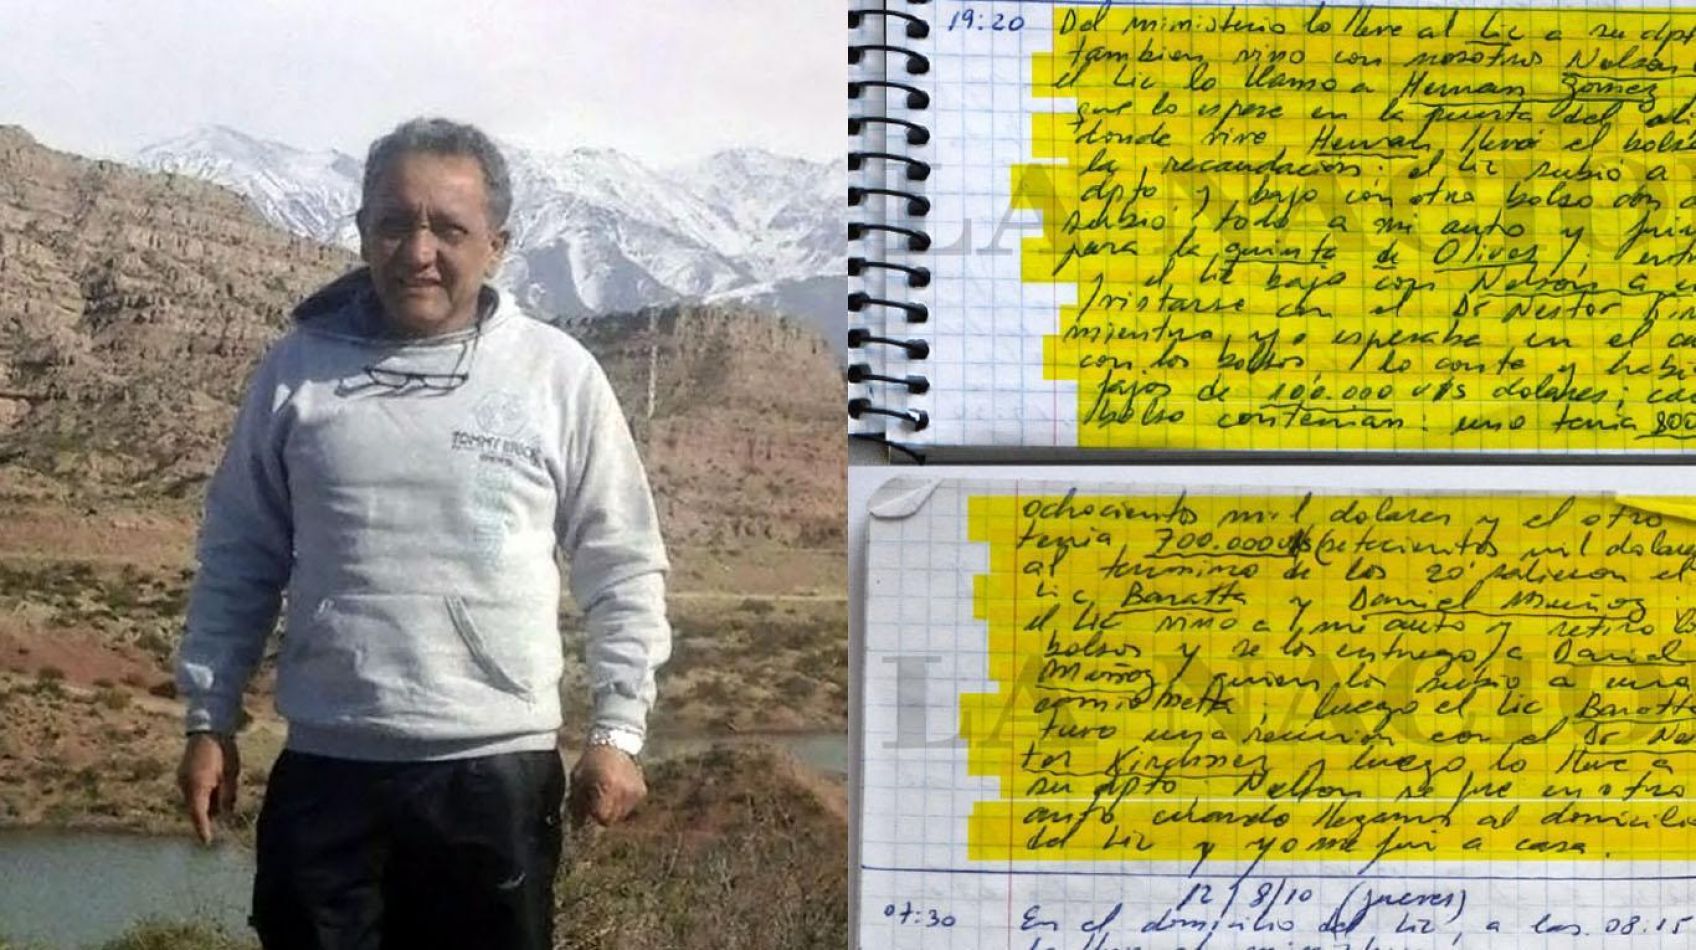 TOMMY
19:20 Del ministerio lo lleve al Lic a su dpt
tambien vino con nosotros Nelson
el Lic lo llamo a Hernan Gomez
que lo espere en la puerta del
donde vive Hernan llevó el bols
la recaudacion. el Lic subio a
dpto y bajo con otro bolso
subio todo a mi auto y fui
para la quinta de Olivos;
y el Lic bajo con Nelson a
ristarse con el Dr Nestor
mientras yo esperaba en el
con los bolsos, lo conte y habi
fajos de 100.000 u$s dolares; ca
bolso contenian: uno tenia 800
LA NACION
ochocientos mil dolares y el otro
tenia 700.000 u$s (setecientos mil dolare
al termino de los 20' salieron el
Lic Baratta y Daniel Muñoz
el Lic vino a mi auto y retiro lo
bolsos y se los entrego a Daniel
Muñoz, quien los subio a una
camioneta; luego el Lic Baratta
tuvo una reunion con el Dr Nes
tor Kirchner y luego lo lleve a
su dpto. Nelson se fue en otro
auto cuando llegamos al domicilio
del Lic y yo me fui a casa.
LA NACIO
12/8/10 (jueves)
07:30 En el domicilio del Lic, a las 08:15